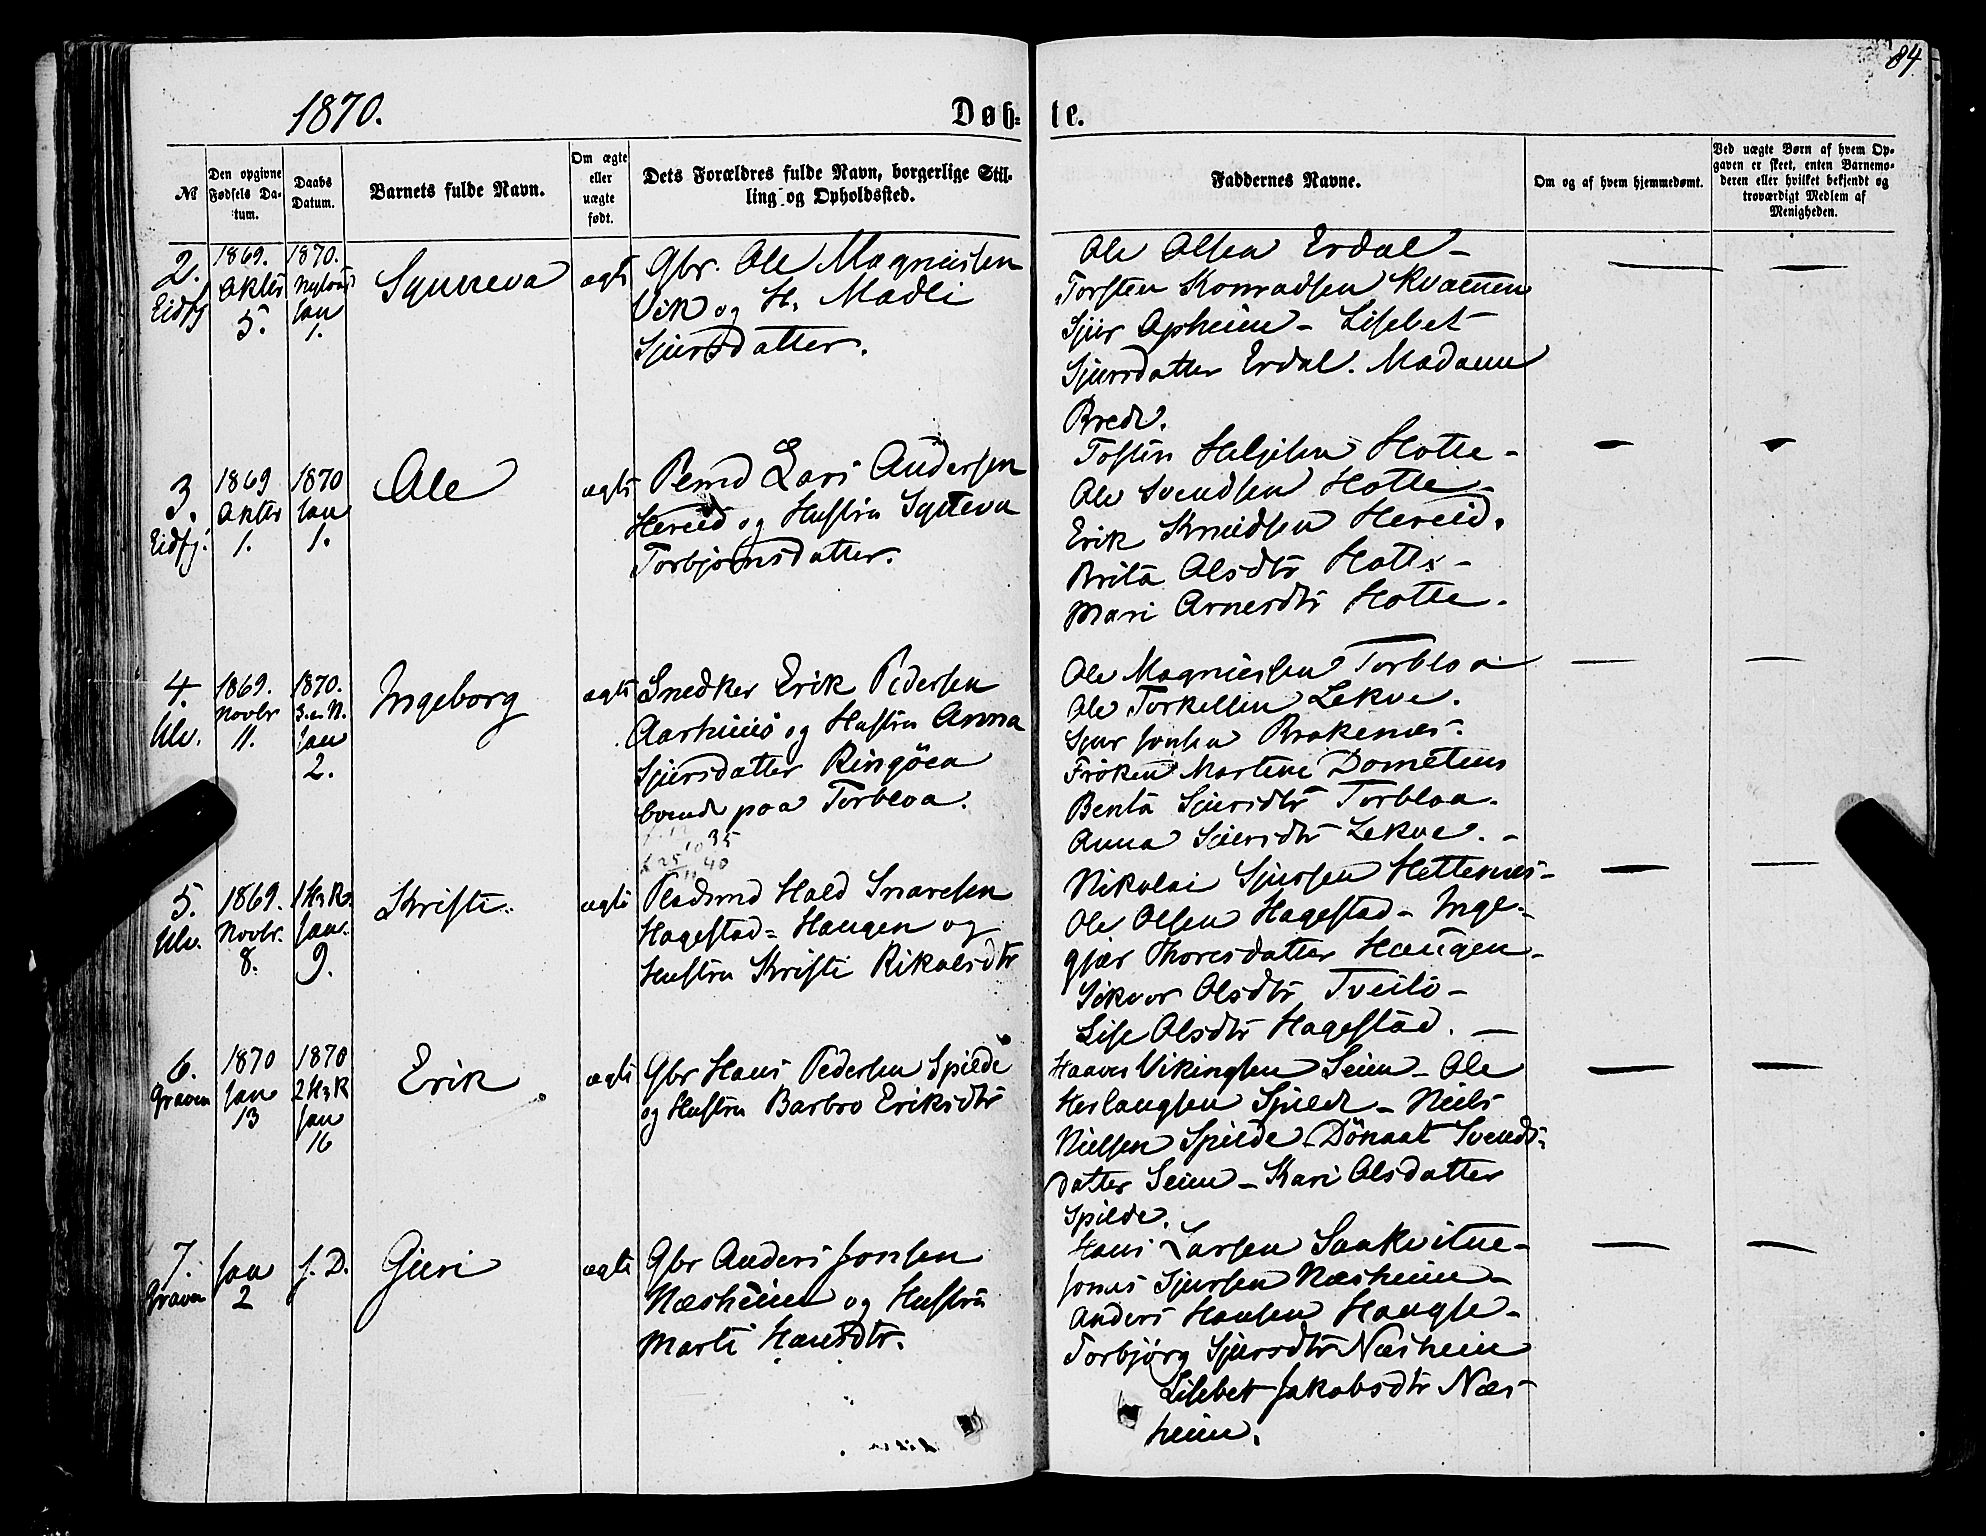 84
1870.
Døb- te.
№
Den opgivne Fødsels Da-tum.
Daabs Datum.
Barnets fulde Navn.
Om ægte eller uægte født.
Dets Forældres fulde Navn, borgerlige Stil-
ling og Opholdssted.
Faddernes Navne.
Om og af hvem hjemmedømt.
Ved uægte Børn af hvem Op-
gaven er skeet, enten Barnemo-
deren eller hvilket bekjendt og
troværdigt Medlem af
Menigheden.
2. Eidfj
1869. Oktbr 5.
1870. Nytaarsd Jan 1.
Synneva
ægte
Gbr. Ole Magnussen
Vik og H. Madli
Sjursdatter.
Ole Olsen Erdal -
Torsten Konradsen Kvamen
Sjur Opheim - Lisbet
Sjursdatter Erdal. Madame
Brede.
3. Eidfj.
1869 Oktbr 1.
1870 Jan 1.
Ole
ægte
Lars Andersen
Hereid og Hustru Synneva
Torbjørnsdatter.
Tosten Helgesen Hotle -
Ole Svendsen Hotle -
Erik Knudsen Hereid.
Brita Olsdtr Hotle -
Mari Arnesdtr Hotle.
4. Ulv.
1869. Novbr 11.
1870. S. e. N. Jan 2.
Ingeborg
ægte
Snedker Erik Pedersen
Aarhuus og Hustru Anna
Sjursdatter Ringøen
boende paa Torbloa.
35
40
Ole Magnussen Torbloa
Ole Torkelsen Lekve.
Sjur Jonsen Brakenes.
Frøken Martine
Benta Sjursdtr Torbloa.
Anna Sjursdtr Lekve. -
5. Ulv.
1869. Novbr. 8.
1 H3K. Jan. 9.
Kristi
ægte
Pladsmd Hald Snaresen
Hagestad- Haugen og
Hustru Kristi Rikolsdtr
Nikolai Sjursen Hellenes-
Ole Olsen Hagestad - Inge-
gjær Thoresdatter Haugen -
Sikvor Olsdtr Tveito -
Lise Olsdtr Hagestad. -
6. Graven
1870 Jan 13
1870 2 H3K Jan 16
Erik
ægte
Gbr Hans Pedersen Spilde
og Hustru Barbro Eriksdtr
Haaver Vikingsen Seim - Ole
Herlaugsen Spilde - Niels
Nielsen Spilde - Dønaat Svends-
datter Seim - Kari Olsdatter
Spilde.
7. Graven
Jan 2
s. D.
Guri
ægte
Gbr Anders Jonsen
Næsheim og Hustru
Marta Hansdtr.
Hans Larsen Saakvitne -
Jonas Sjursen Næsheim -
Anders Hansen Haugse -
Torbjørg Sjursdtr Næsheim
Lisbet Jakobsdtr Næs-
heim.